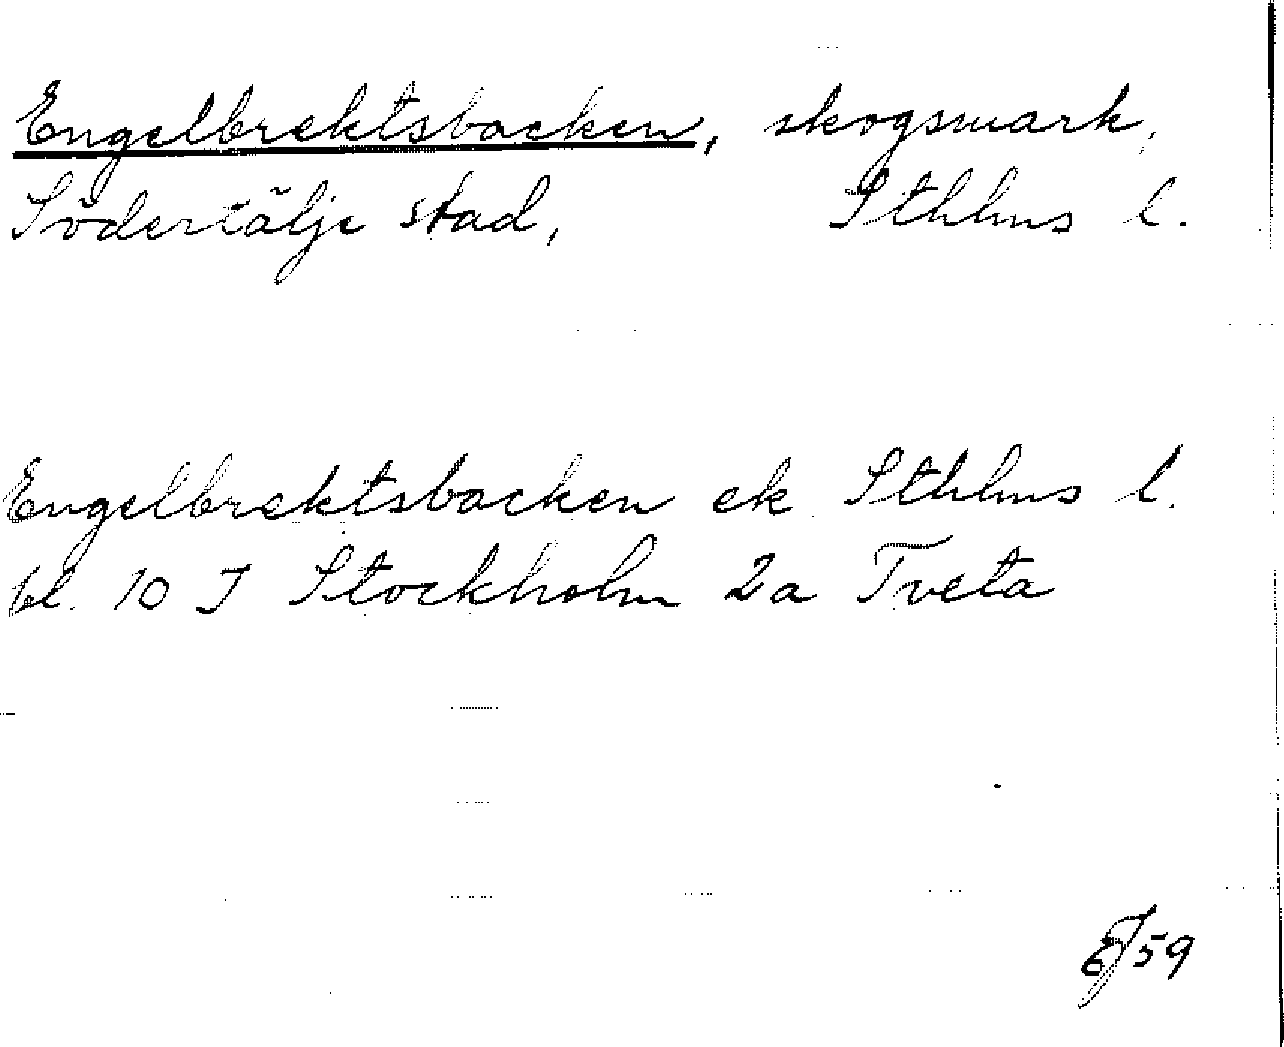 Engelbrektsbacken, skogsmark,
Södertälje stad, Sthlms l.
Engelbrektsbacken ek Sthlms l.
bl. 10 J Stockholm 2a Tveta
EJ 59